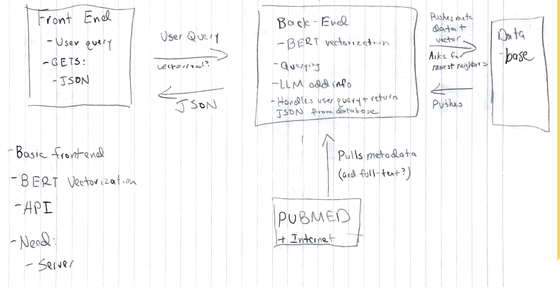 Front End
- User query
- GETS:
- JSON
User Query
vectorized?
JSON
Back-End
- BERT vectorization
- Querying
- LLM add info
- Handles user query + return
JSON from database
Pushes meta
data +
vector
Asks for
nearest neighbors
Pushes
Data
-base
Pulls metadata
(and full-text?)
PUBMED
+ Internet
- Basic frontend
- BERT Vectorization
- API
- Need:
- Server